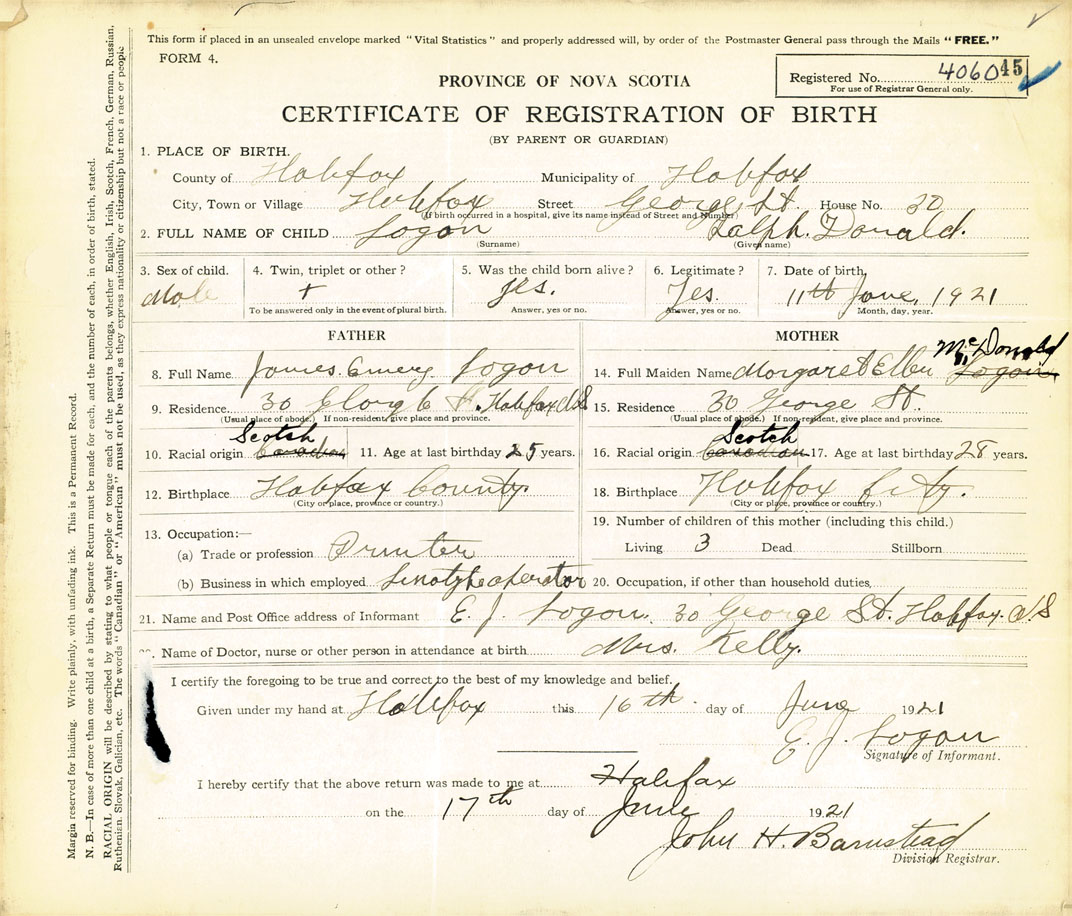 This form if placed in an unsealed envelope marked "Vital Statistics" and properly addressed will, by order of the Postmaster General pass through the Mails "FREE."
FORM 4.
Registered No. 4060 45
For use of Registrar General only.
PROVINCE OF NOVA SCOTIA
CERTIFICATE OF REGISTRATION OF BIRTH
(BY PARENT OR GUARDIAN)
1. PLACE OF BIRTH.
County of Halifax Municipality of Halifax
City, Town or Village Halifax Street George St. House No. 30
(If birth occurred in a hospital, give its name instead of Street and Number)
2. FULL NAME OF CHILD Logan Ralph. Donald.
(Surname) (Given name)
3. Sex of child. 4. Twin, triplet or other? 5. Was the child born alive? 6. Legitimate? 7. Date of birth,
Male + yes. Yes. 11th June, 1921
To be answered only in the event of plural birth. Answer, yes or no. Answer, yes or no. Month, day, year.
FATHER MOTHER
McDonald
8. Full Name James Emery Logan 14. Full Maiden Name Margaret Ellen Logan
9. Residence 30 George St. Halifax N.S 15. Residence 30 George St.
(Usual place of abode.) If non-resident, give place and province. (Usual place of abode.) If non-resident, give place and province.
Scotch Scotch
10. Racial origin Canadian 11. Age at last birthday 25 years. 16. Racial origin Canadian 17. Age at last birthday 28 years.
12. Birthplace Halifax County. 18. Birthplace Halifax City.
(City or place, province or country.) (City or place, province or country.)
13. Occupation:— 19. Number of children of this mother (including this child.)
(a) Trade or profession Printer Living 3 Dead Stillborn
(b) Business in which employed Linotype operator 20. Occupation, if other than household duties,
21. Name and Post Office address of Informant E. J. Logan. 30 George St. Halifax. N.S
Name of Doctor, nurse or other person in attendance at birth Mrs. Kelly.
I certify the foregoing to be true and correct to the best of my knowledge and belief.
Given under my hand at Halifax this 16th day of June 1921
E. J. Logan
Signature of Informant.
I hereby certify that the above return was made to me at Halifax
on the 17th day of June 1921
John H. Barnstead
Division Registrar.
Margin reserved for binding. Write plainly, with unfading ink. This is a Permanent Record.
N. B.—In case of more than one child at a birth, a Separate Return must be made for each, and the number of each, in order of birth, stated.
RACIAL ORIGIN will be described by stating to what people or tongue each of the parents belongs, whether English, Irish, Scotch, French, German, Russian,
Ruthenian, Slovak, Galician, etc. The words "Canadian" or "American" must not be used, as they express nationality or citizenship but not a race or people